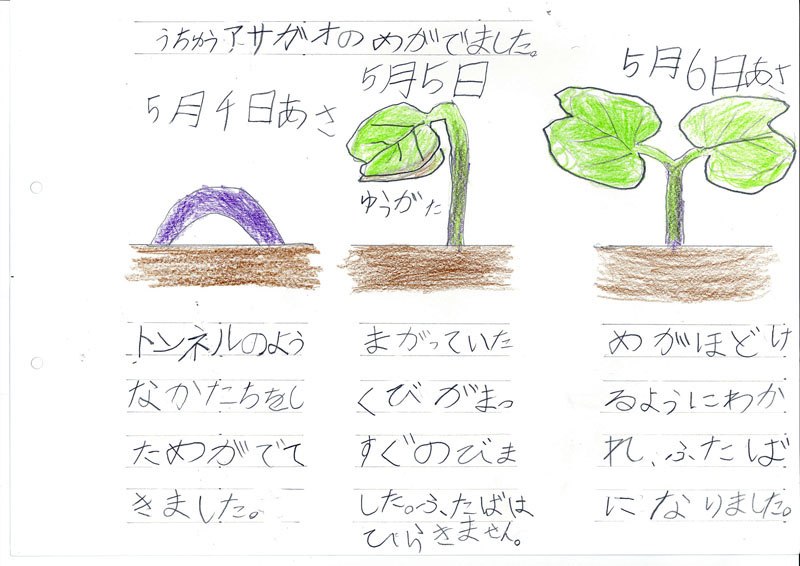 うちゅうアサガオのめがでました。
5月4日あさ
トンネルのよう
なかたちをし
ためがでて
きました。
5月5日
ゆうがた
まがっていた
くびがまっ
すぐのびま
した。ふたばは
ひらきません。
5月6日あさ
めがほどけ
るようにわか
れ、ふたば
になりました。